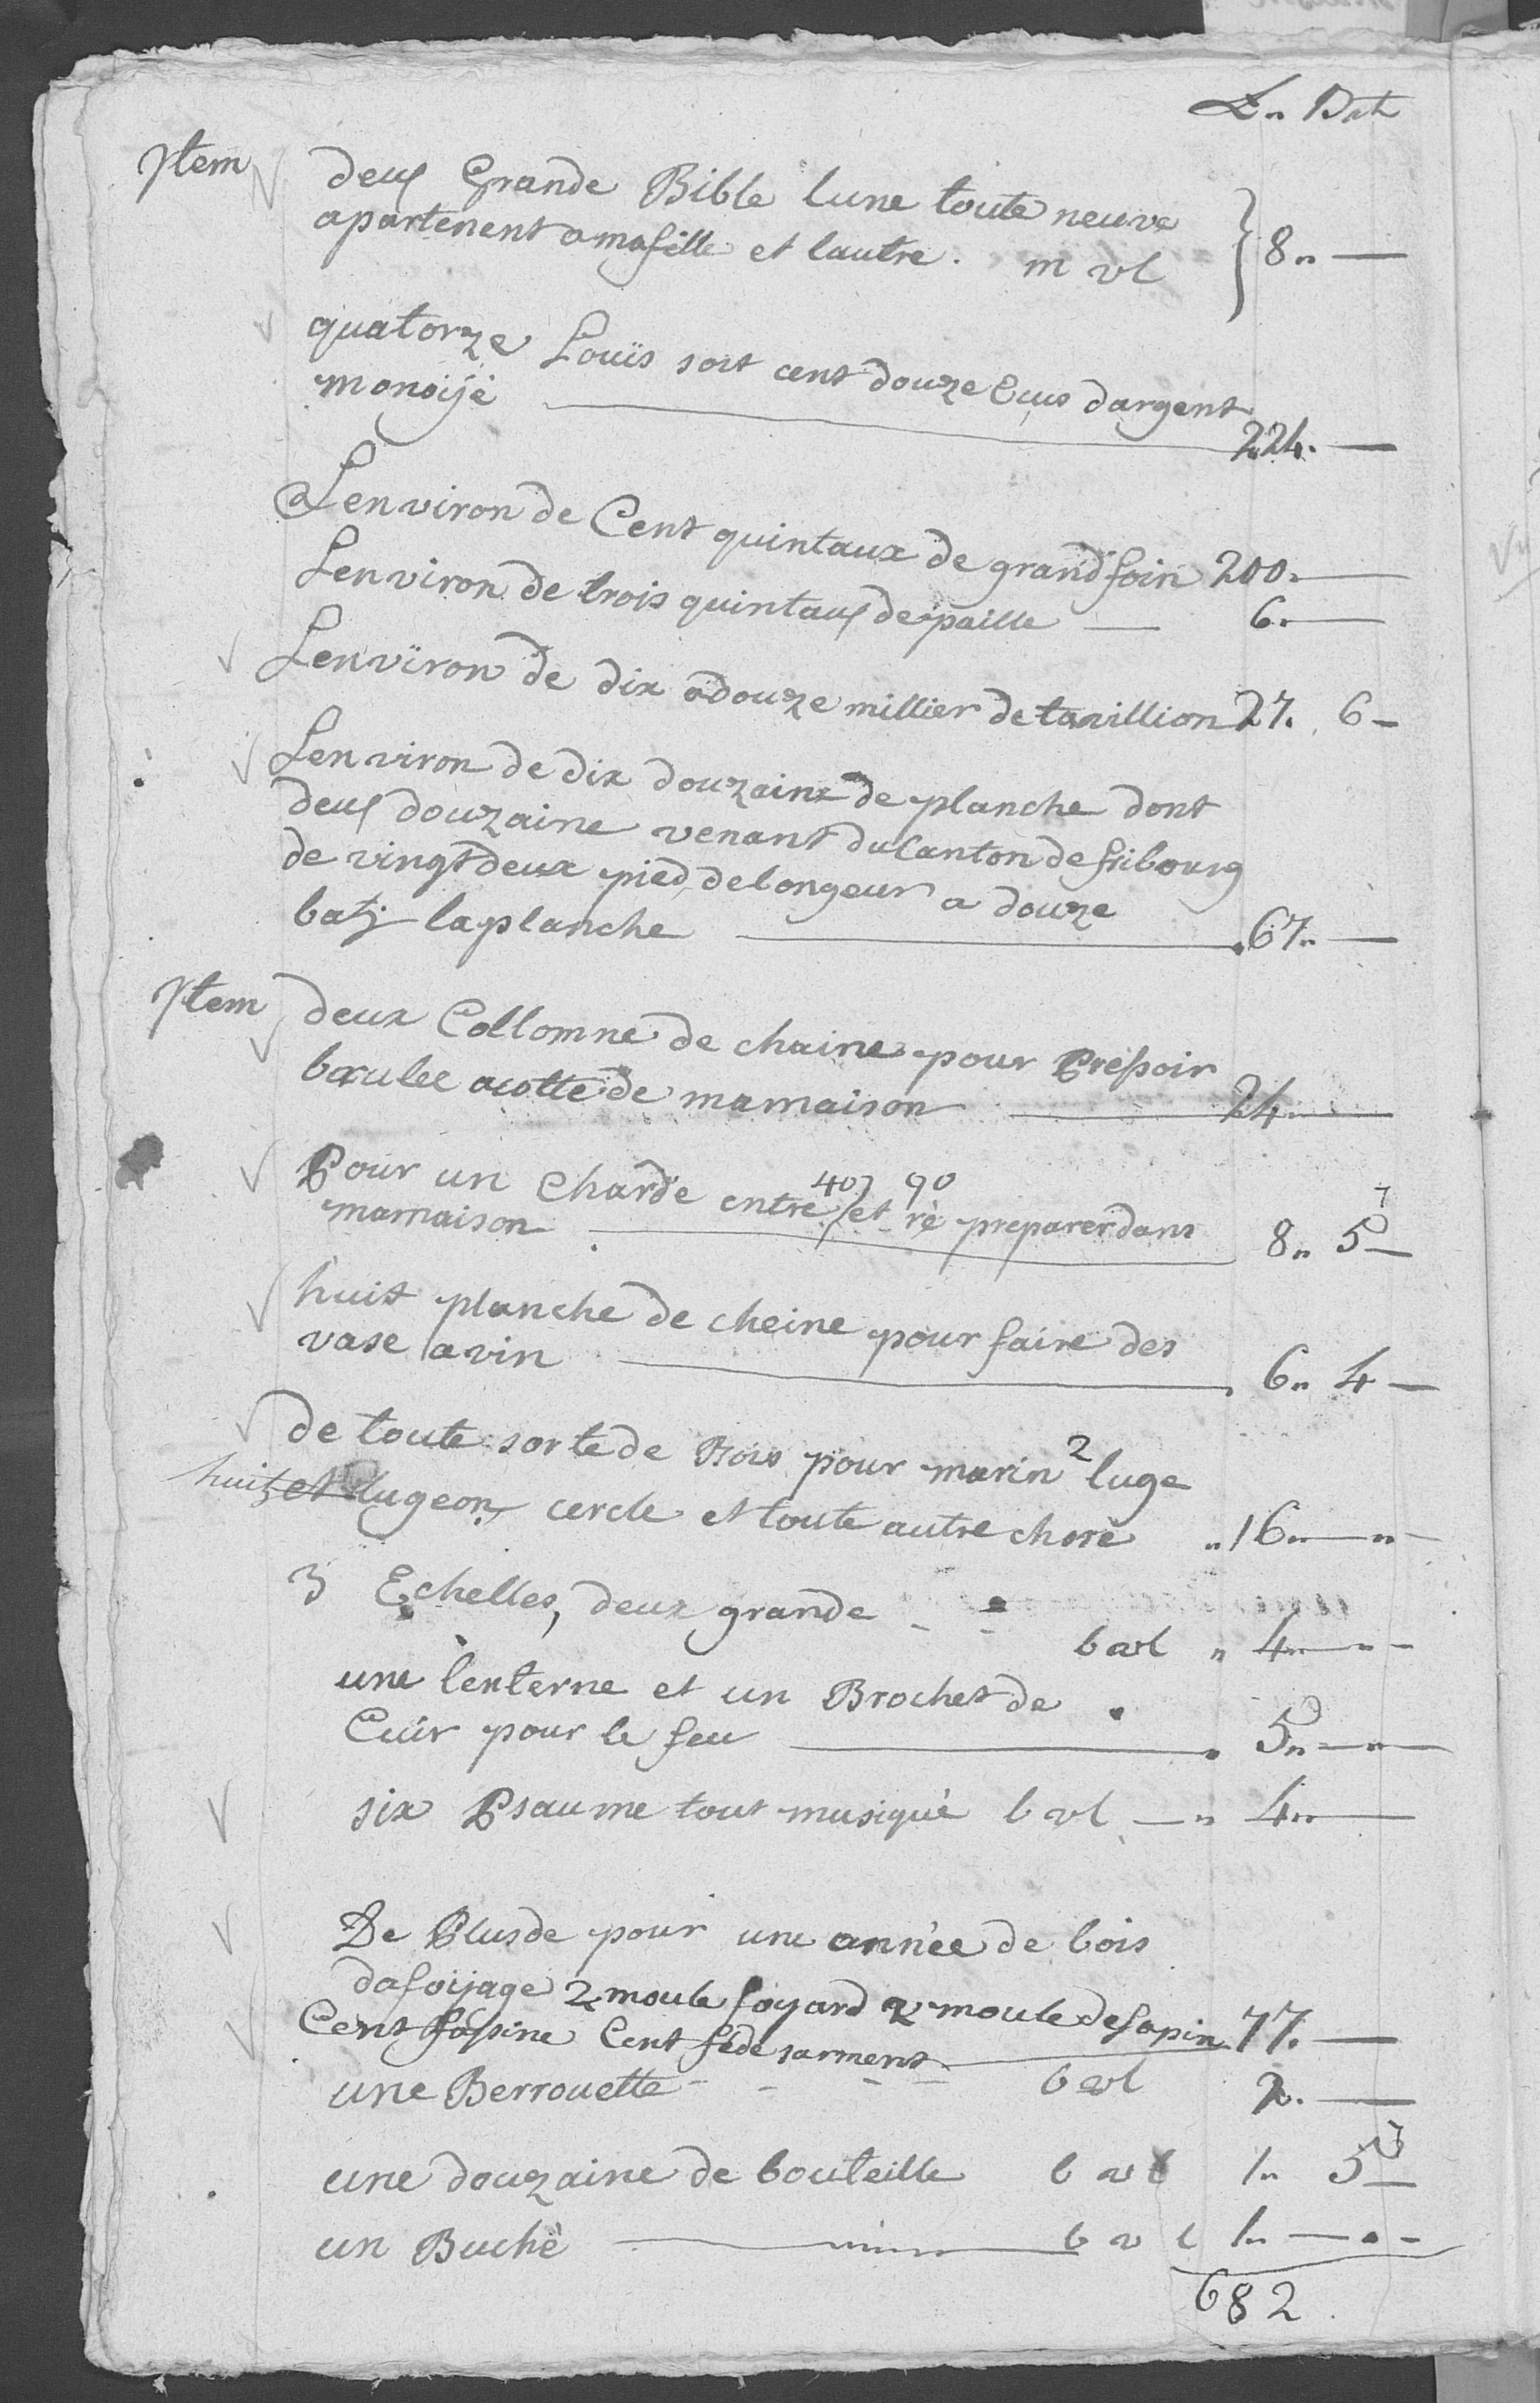 L.. Batz
Jtem deux Grande Bible lune toute neuve
apartenent a ma fille et lautre. m vl } 8.. —
quatorze Louïs soit cent douze Ecus dargent
monoÿé — 224. —
Lenviron de Cent quintaux de grand foin 200. —
Lenviron de trois quintaux de paille — 6. —
Lenvïron de dix a douze millier de tavillion 27. 6 —
Lenviron de dix douzaine de planche dont
deux douzaine venant du Canton de fribourg
de vingt deux pied de longeur a douze
batz la planche — 67.. —
Jtem deux Collomne de chaine pour Pressoir
baculee a cotté de ma maison — 24 —
Pour un Char de entre 40 et 90 ré preparer dans
ma maison — 8.. 5 —
huit planche de cheine pour faire des
vase a vin — 6.. 4 —
de toute sorte de Bois pour marin 2 luge
huit et lugeon, cercle et toute autre chose .. 16.. —
3 Echelles, deux grande - - b vl .. 4.. —
une lenterne et un Brochet de
Cuir pour le feu — 5.. —
six Psaume tout musiqué b vl — .. 4.. —
De Plus de pour une année de bois
dafoÿage 2 moule foyard 2 moule de sapin
Cent fassine Cent fé de sarment — 77. —
une Berrouette - - - b vl 2. —
une douzaine de bouteille b vl 1.. 5 —
un Buché — b v l 1.. —
682